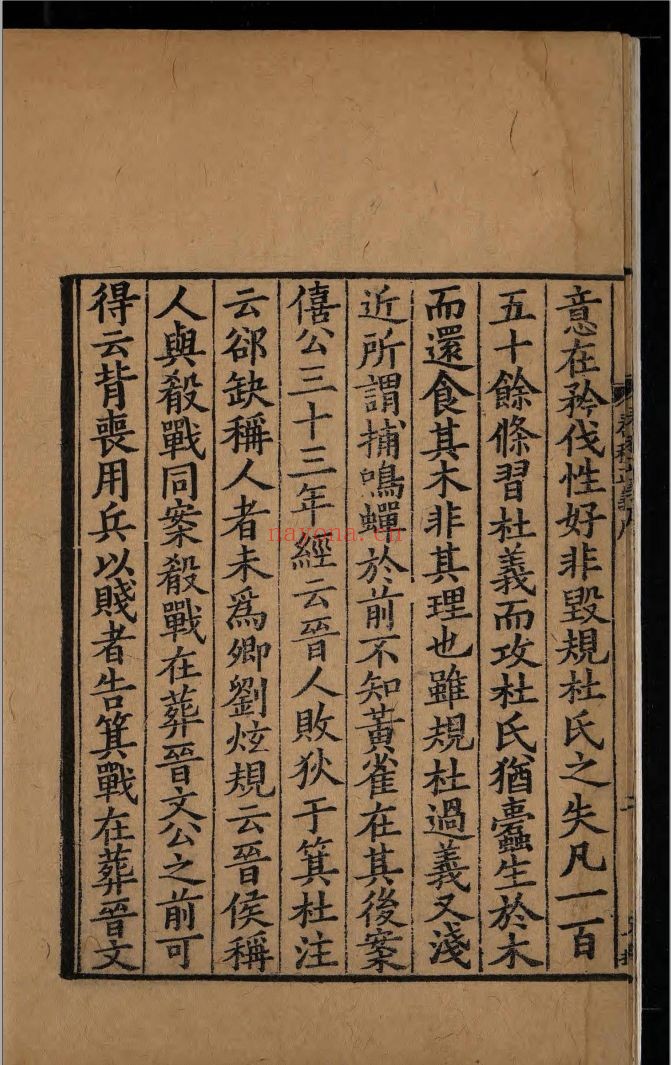 意在矜伐性好非毀規杜氏之失凡一百
五十餘條習杜義而攻杜氏猶蠹生於木
而還食其木非其理也雖規杜過義又淺
近所謂捕鳴蟬於前不知黃雀在其後案
僖公三十三年經云晉人敗狄于箕杜注
云郤缺稱人者未爲卿劉炫規云晉侯稱
人與殽戰同案殽戰在葬晉文公之前可
得云背喪用兵以賤者告箕戰在葬晉文
nayona.cn